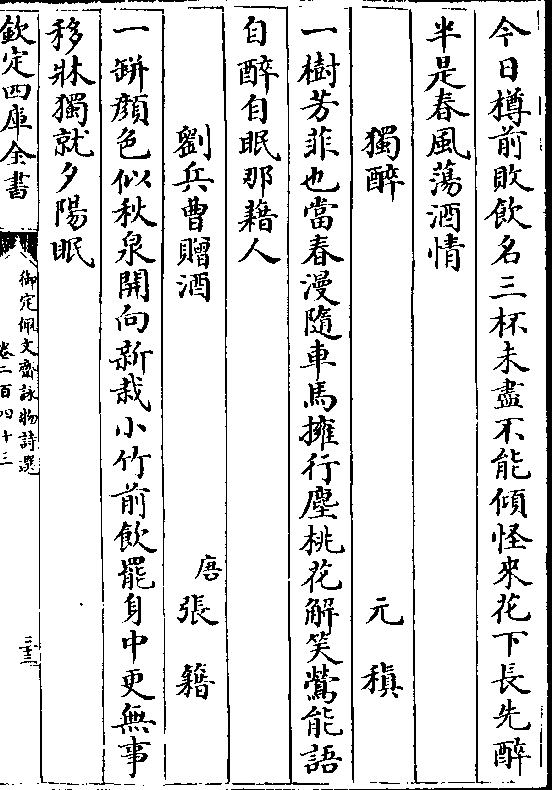 今日樽前敗飲名三杯未盡不能傾怪來花下長先醉
半是春風蕩酒情
獨醉 元稹
一樹芳菲也當春漫隨車馬擁行塵桃花解笑鶯能語
自醉自眠那藉人
劉兵曹贈酒 唐 張籍
一缾顔色似秋泉開向新栽小竹前飲罷身中更無事
移牀獨就夕陽眠
欽定四庫全書
御定佩文齋詠物詩選
卷二百四十三
三十三